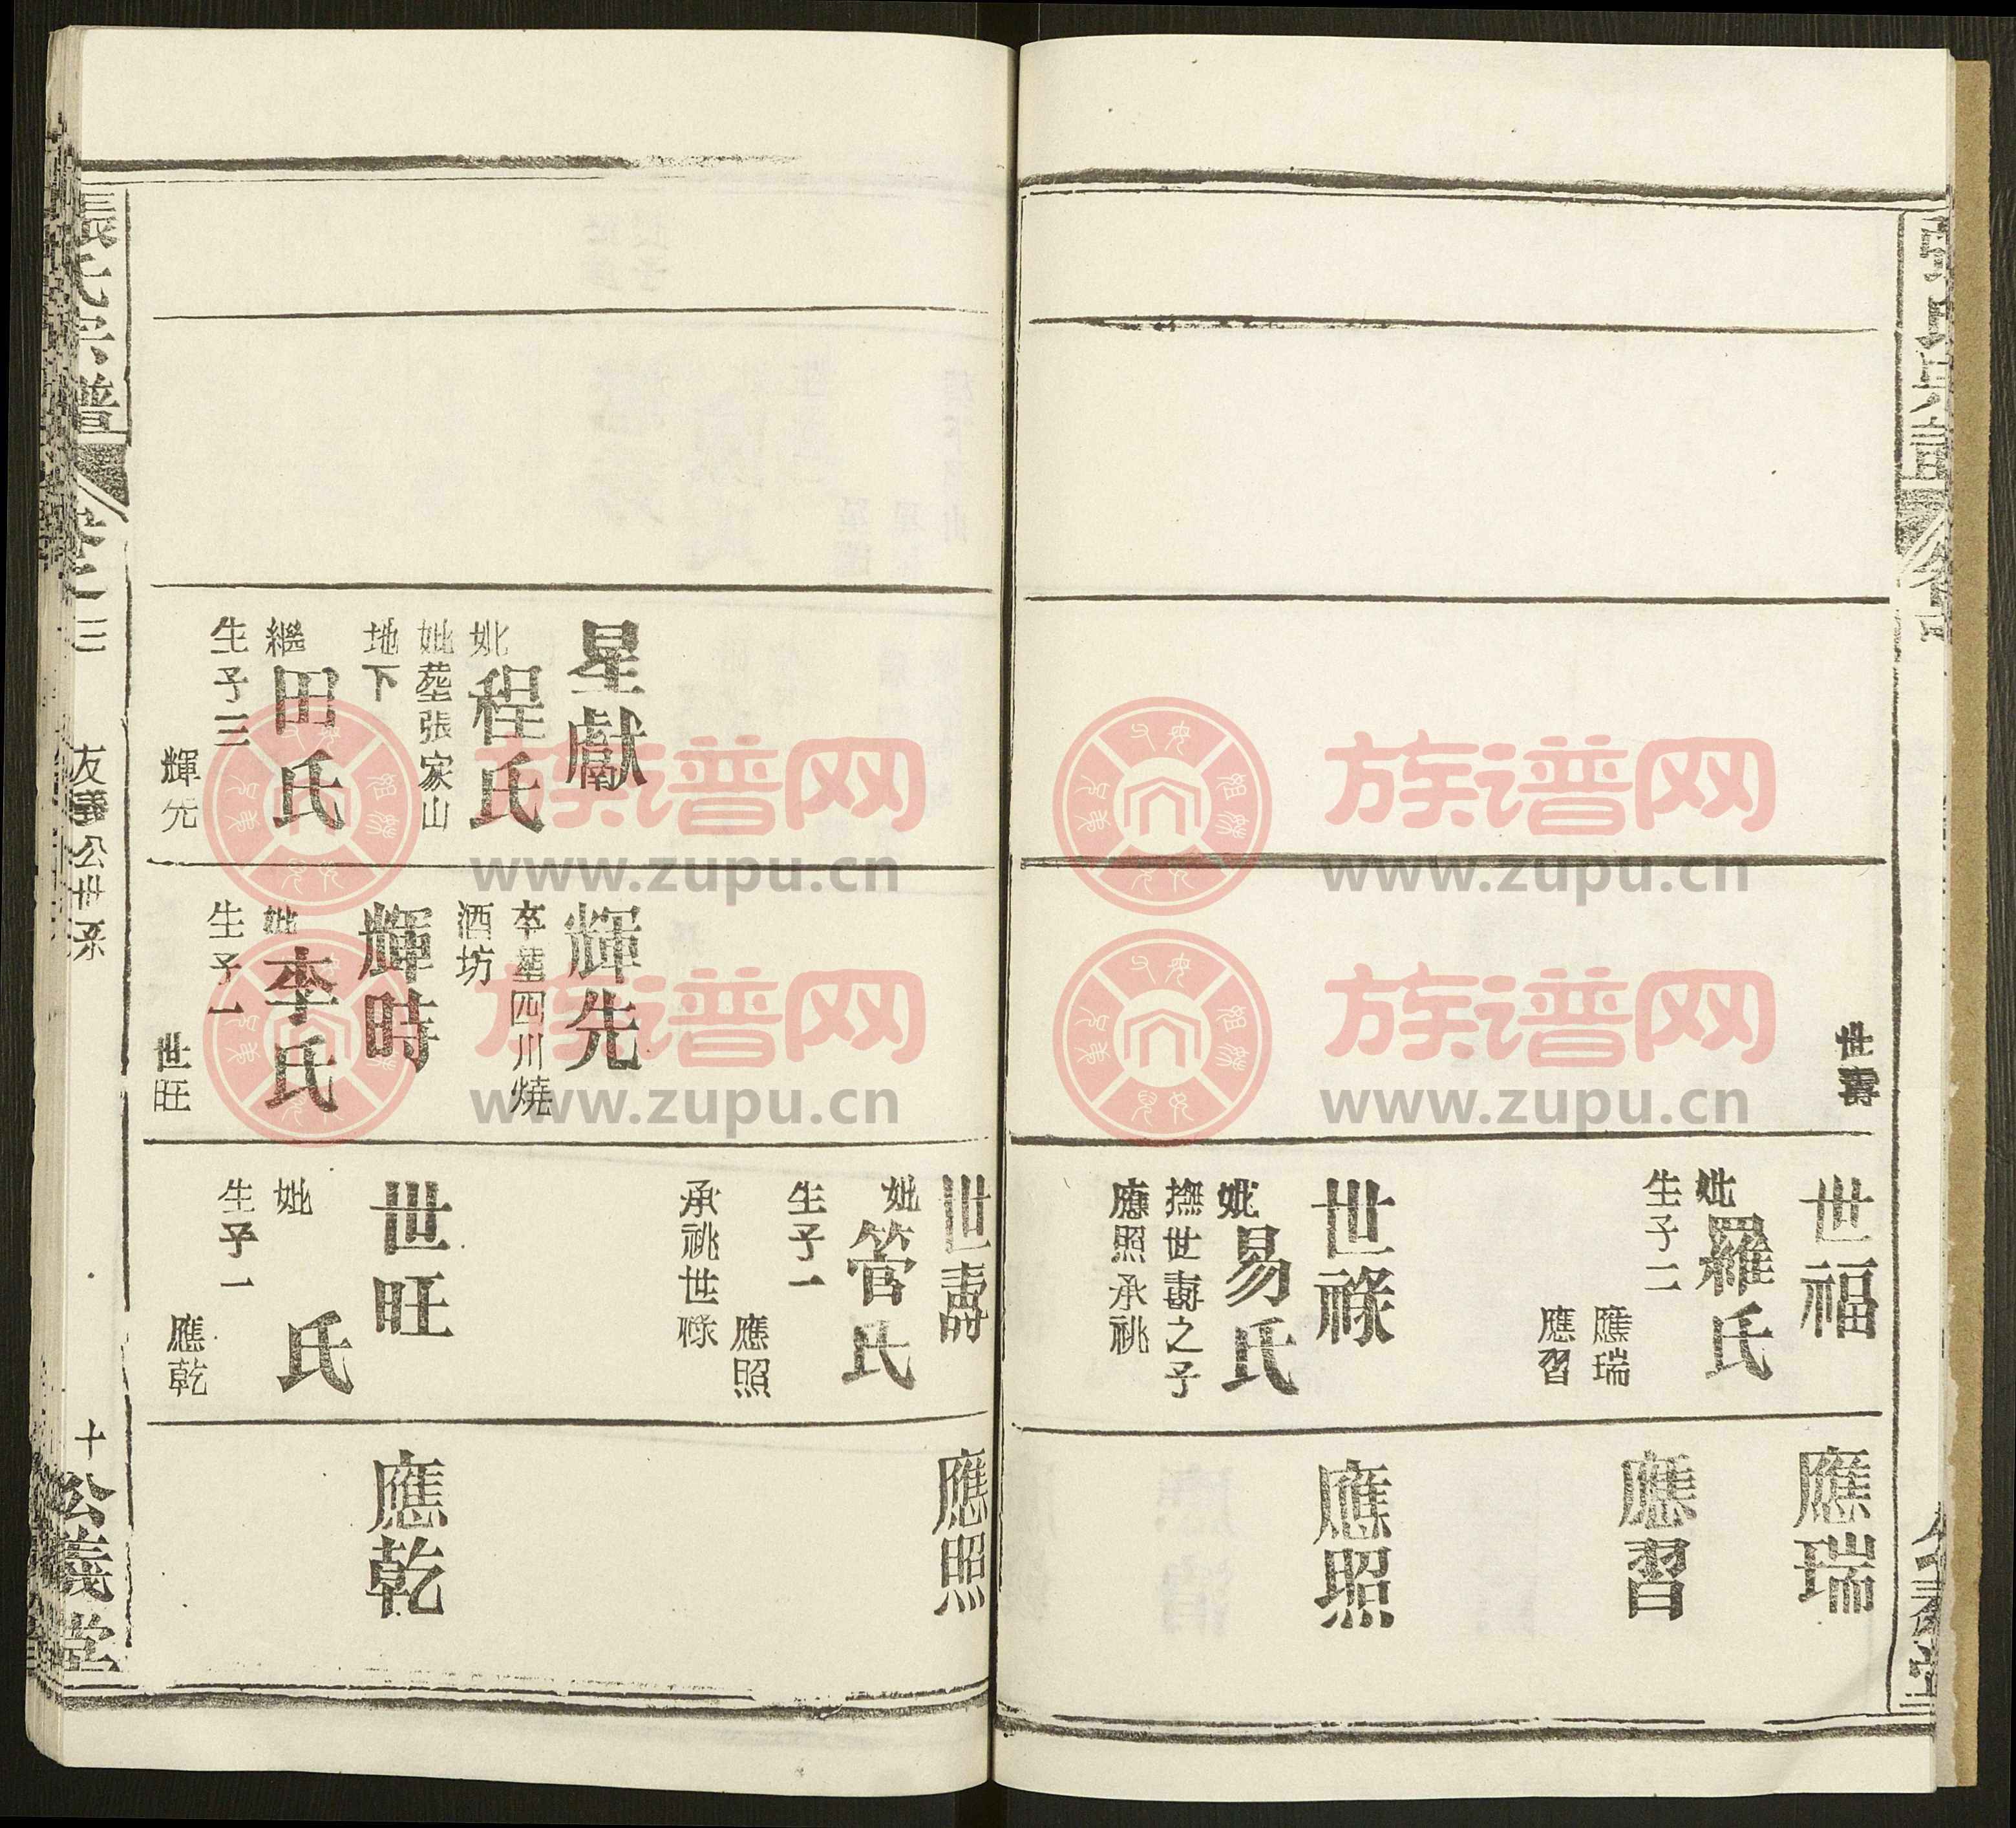 世壽
世福
妣羅氏
生子二
應瑞
應習
世祿
妣易氏
撫世壽之子
應照承祧
應瑞
應習
應照
星獻
妣程氏
妣塟張家山
地下
繼田氏
生子三
輝先
輝先
卒塟四川燒
酒坊
輝時
妣李氏
生子一
世旺
世壽
妣管氏
生子一
應照
承祧世祿
世旺
妣 氏
生子一
應乾
應照
應乾
張氏宗譜
卷之三
友義公世系
十
公義堂
族谱网
www.zupu.cn
族谱网
www.zupu.cn
族谱网
www.zupu.cn
族谱网
www.zupu.cn